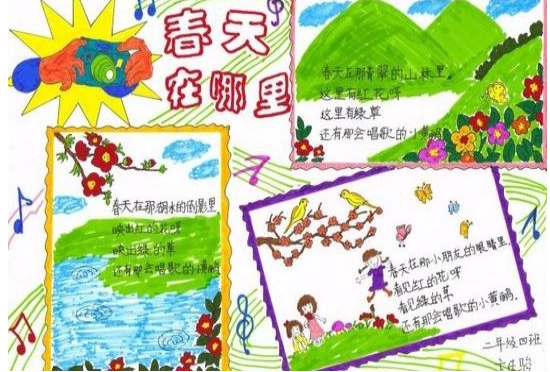 春天
在哪里
春天在那青翠的山林里,
这里有红花呀
这里有绿草
还有那会唱歌的小黄鹂
春天在那湖水的倒影里
映出红的花呀
映出绿的草
还有那会唱歌的小黄鹂
春天在那小朋友的眼睛里,
看见红的花呀
看见绿的草
还有那会唱歌的小黄鹂.
二年级四班